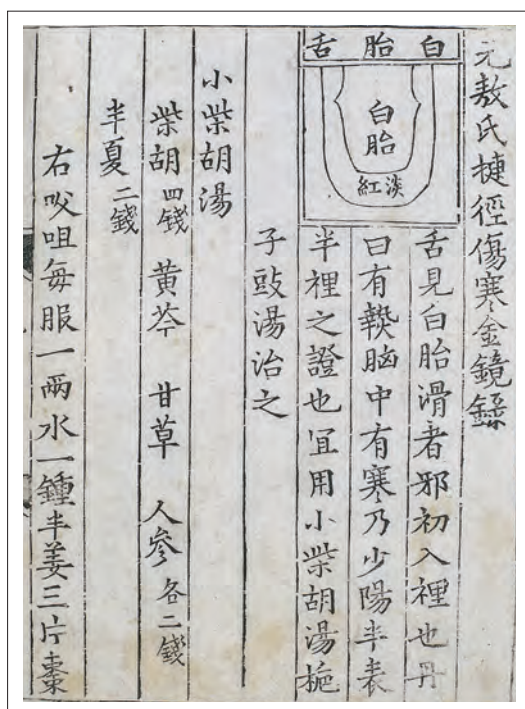 元敖氏揵徑傷寒金鏡錄
白胎舌
白胎
淡紅
舌見白胎滑者邪初入裡也丹
曰有熱脑中有寒乃少陽半表
半裡之證也宜用小柴胡湯梔
子豉湯治之
小柴胡湯
柴胡四錢 黄芩 甘草 人參各二錢
半夏二錢
右㕮咀每服一兩水一鍾半姜三片棗